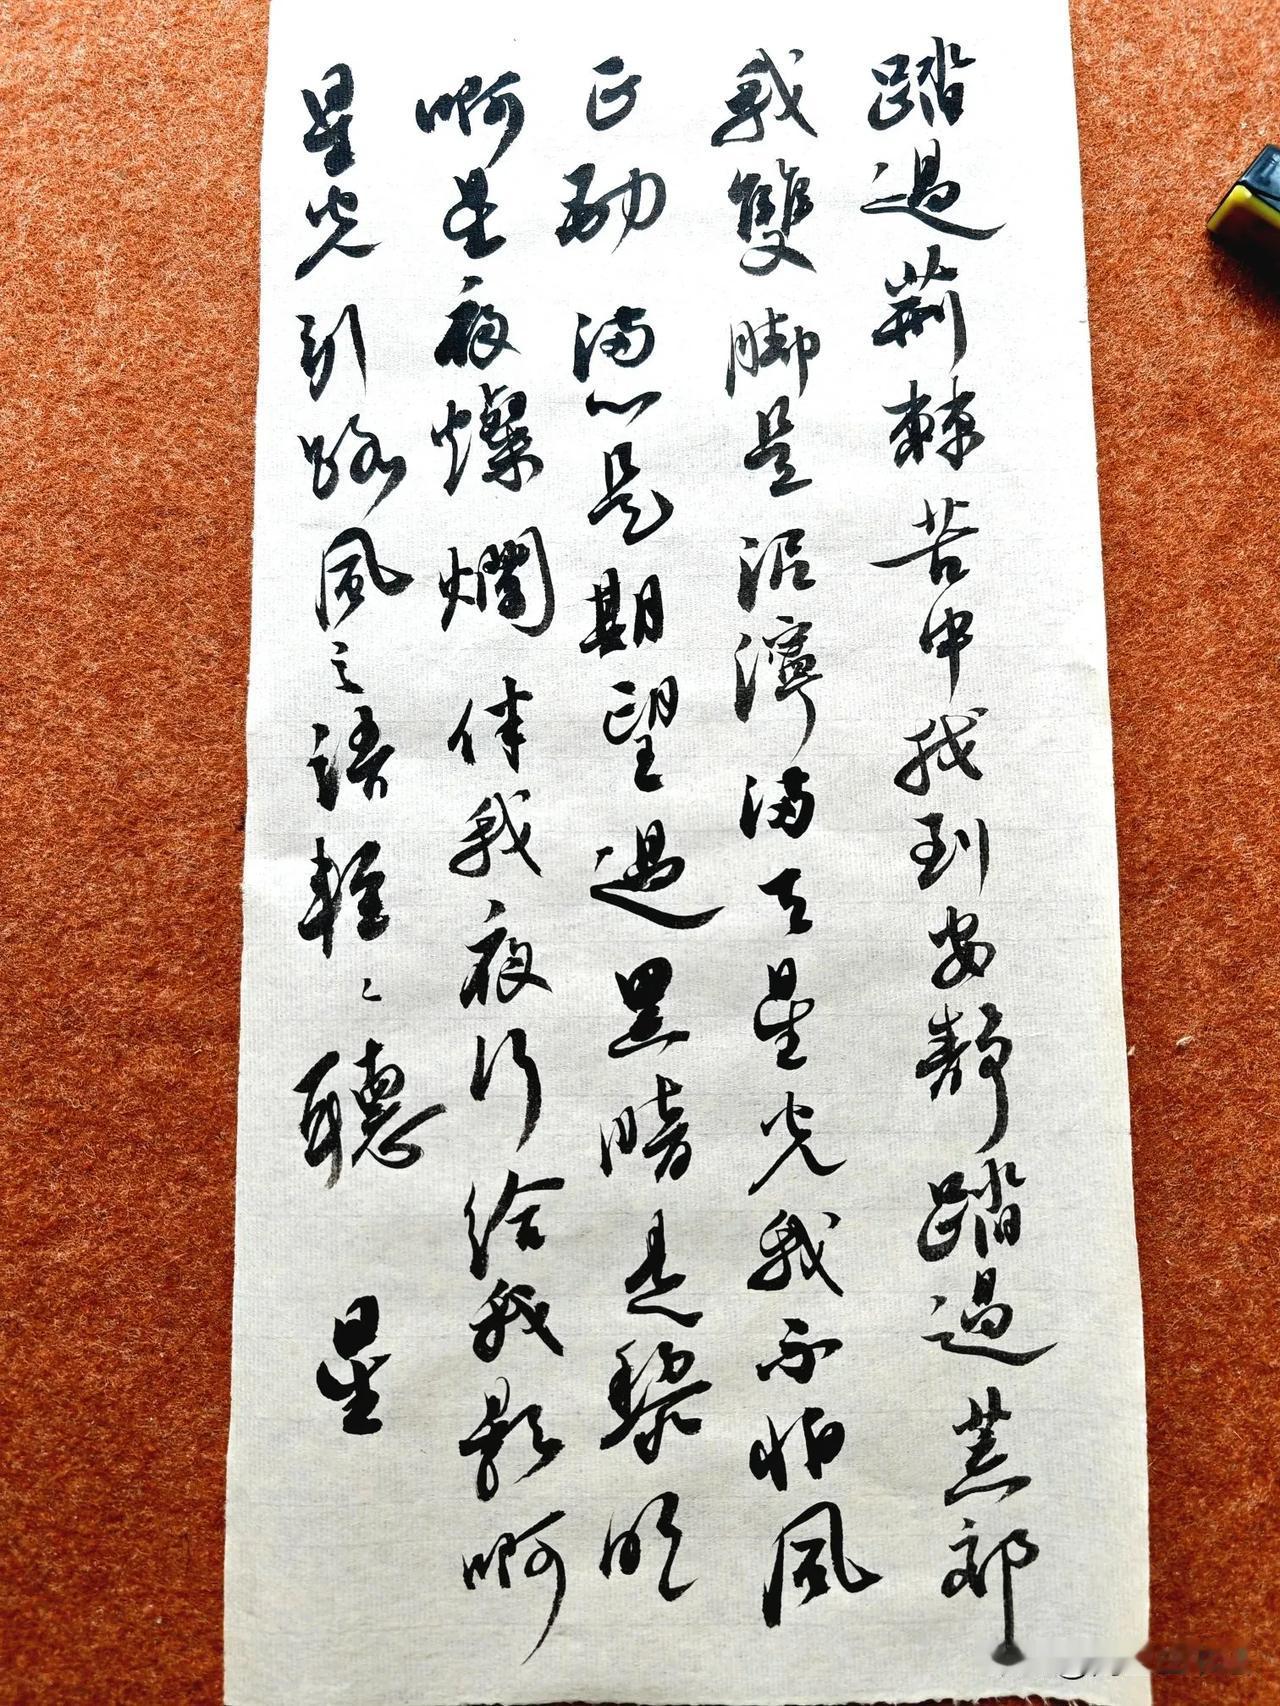 踏過荊棘苦中找到安靜踏過荒郊
我雙脚是泥濘滿天星光我不怕風
正勁滿心是期望過黑暗是黎明
啊星夜燦爛伴我夜行給我影啊
星光引路風之語輕々聽 星